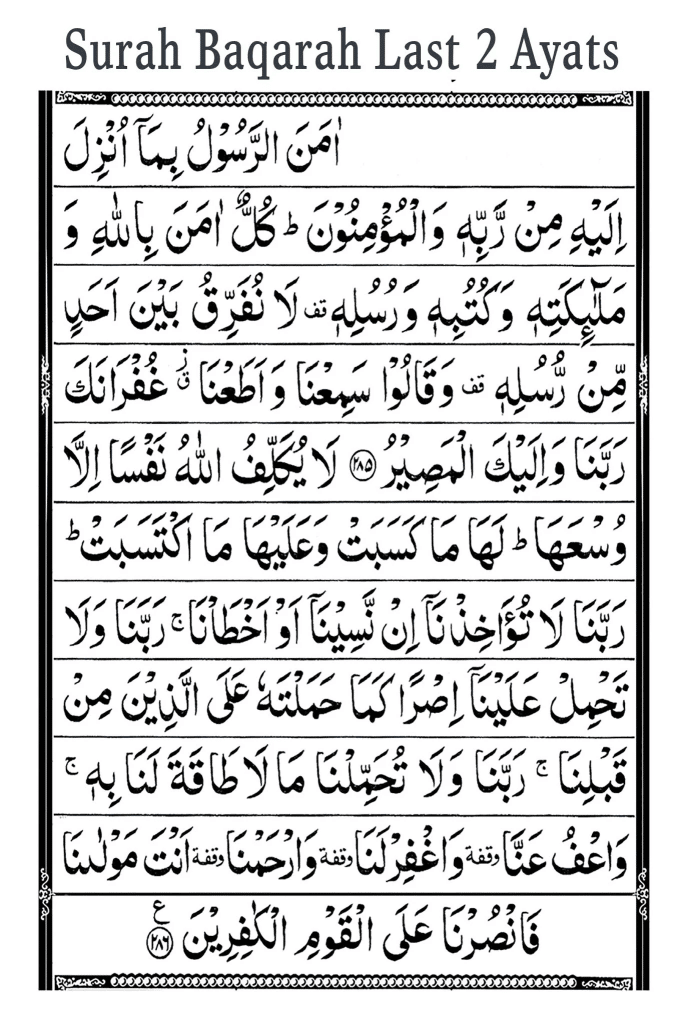 Surah Baqarah Last 2 Ayats
اٰمَنَ الرَّسُوْلُ بِمَاۤ اُنْزِلَ
اِلَيْهِ مِنْ رَّبِّهٖ وَالْمُؤْمِنُوْنَ ؕ كُلٌّ اٰمَنَ بِاللّٰهِ وَ
مَلٰٓئِكَتِهٖ وَكُتُبِهٖ وَرُسُلِهٖ قف لَا نُفَرِّقُ بَيْنَ اَحَدٍ
مِّنْ رُّسُلِهٖ قف وَقَالُوْا سَمِعْنَا وَاَطَعْنَا ز ق غُفْرَانَكَ
رَبَّنَا وَاِلَيْكَ الْمَصِيْرُ ۝۲۸۵ لَا يُكَلِّفُ اللّٰهُ نَفْسًا اِلَّا
وُسْعَهَا ؕ لَهَا مَا كَسَبَتْ وَعَلَيْهَا مَا اكْتَسَبَتْ ؕ
رَبَّنَا لَا تُؤَاخِذْنَاۤ اِنْ نَّسِيْنَاۤ اَوْ اَخْطَاْنَا ۚ رَبَّنَا وَلَا
تَحْمِلْ عَلَيْنَاۤ اِصْرًا كَمَا حَمَلْتَهٗ عَلَى الَّذِيْنَ مِنْ
قَبْلِنَا ۚ رَبَّنَا وَلَا تُحَمِّلْنَا مَا لَا طَاقَةَ لَنَا بِهٖ ۚ
وَاعْفُ عَنَّا وقفة وَاغْفِرْ لَنَا وقفة وَارْحَمْنَا وقفة اَنْتَ مَوْلٰىنَا
فَانْصُرْنَا عَلَى الْقَوْمِ الْكٰفِرِيْنَ ۝۲۸۶ ع